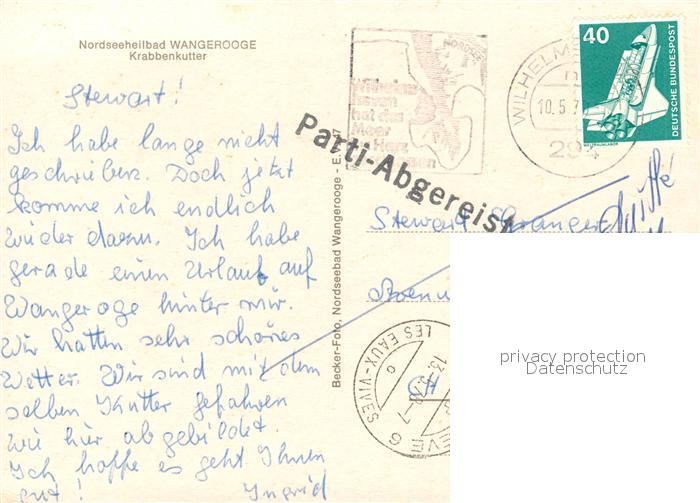 Nordseeheilbad WANGEROOGE
Krabbenkutter
Stewart!
Ich habe lange nicht
geschrieben. Doch jetzt
komme ich endlich
wieder dazu. Ich habe
gerade einen Urlaub auf
Wangeroge hinter mir.
Wir hatten sehr schönes
Wetter. Wir sind mit dem
selben Kutter gefahren
wie hier abgebildet.
Ich hoffe es geht Ihnen
gut! Ingrid
Becker-Foto, Nordseebad Wangerooge - E.
NORDSEE
Wilhelms
haven
hat das
Meer
Herz
WILHELM
10.5.7
294
40
DEUTSCHE BUNDESPOST
WELTRAUMLABOR
Parti-Abgereist
Stewart
LES EAUX-VIVES
13.
EVE 6
CH
privacy protection
Datenschutz